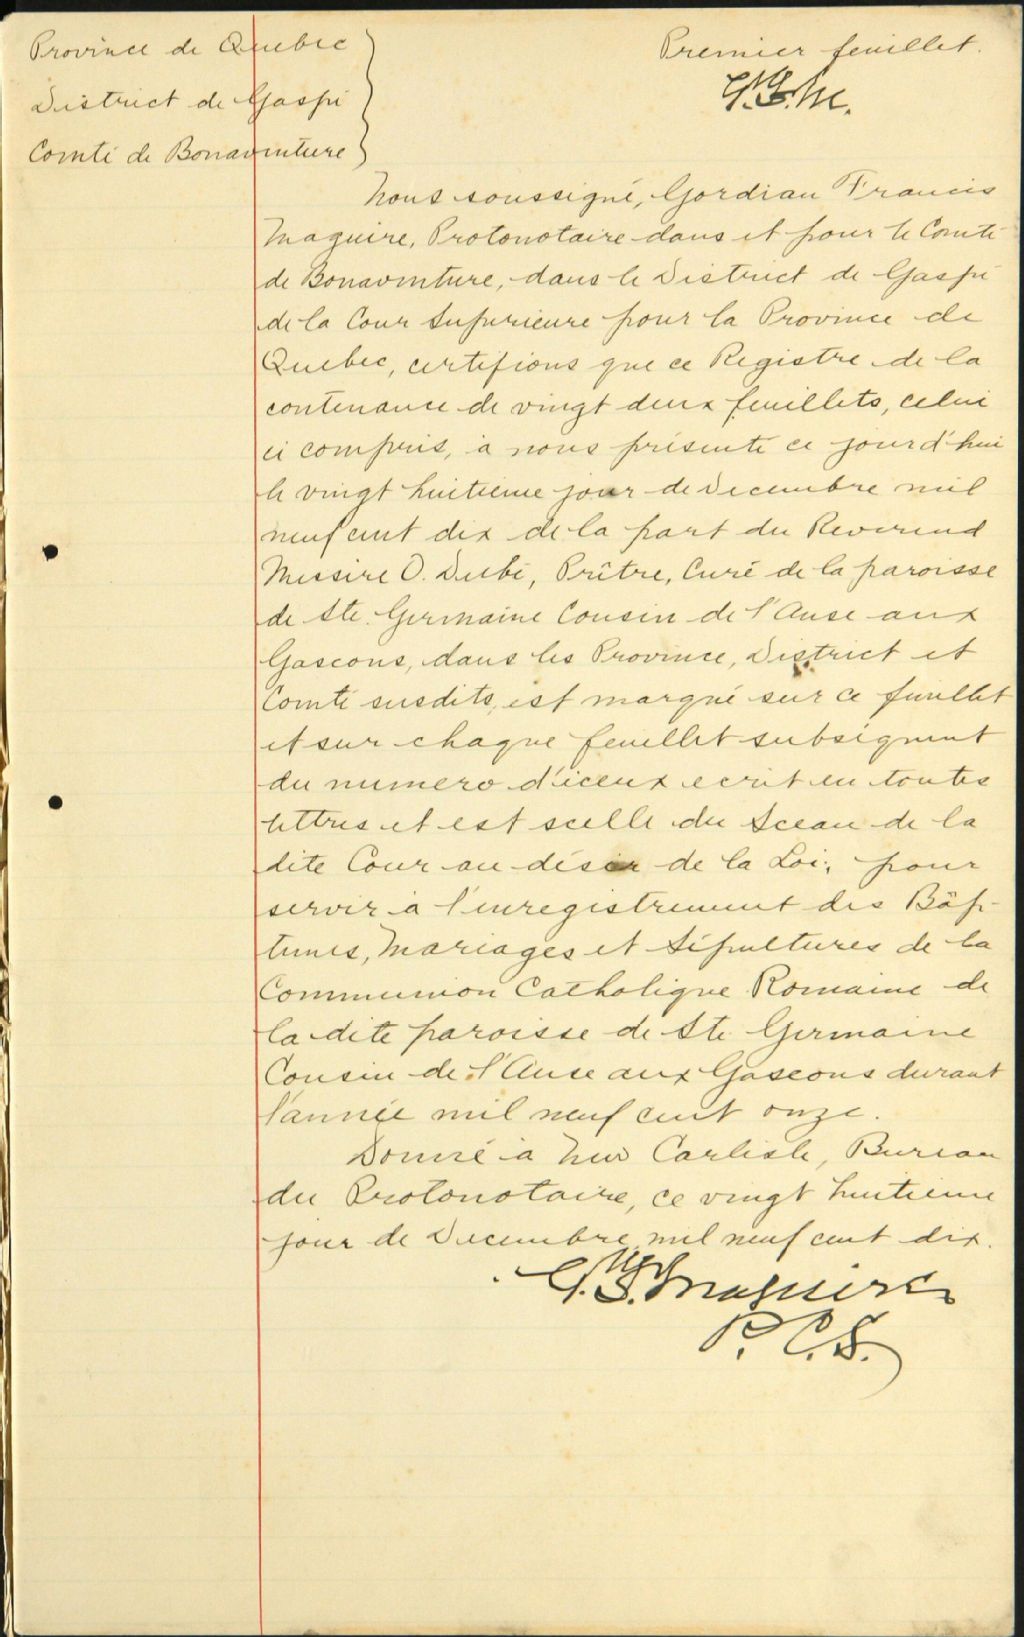 Province de Quebec
District de Gaspé
Comté de Bonaventure
Premier feuillet.
G.F.M.
Nous soussigné, Gordian Francis
Maguire, Protonotaire dans et pour le Comté
de Bonaventure, dans le District de Gaspé
de la Cour Superieure pour la Province de
Quebec, certifions que ce Registre de la
contenance de vingt deux feuillets, celui
ci compris, à nous présenté ce jourd'hui
le vingt huitieme jour de Decembre mil
neuf cent dix de la part du Reverend
Messire O. Dubé, Prêtre, Curé de la paroisse
de Ste. Germaine Cousin de l'Anse aux
Gascons, dans les Province, District et
Comté susdits, est marqué sur ce feuillet
et sur chaque feuillet subséquent
du numero d'iceux ecrit en toutes
lettres et est scellé du Sceau de la
dite Cour au désir de la Loi, pour
servir à l'enregistrement des Bâp-
temes, Mariages et Sépultures de la
Communion Catholique Romaine de
la dite paroisse de Ste Germaine
Cousin de l'Anse aux Gascons durant
l'année mil neuf cent onze.
Donné à New Carlisle, Bureau
du Protonotaire, ce vingt huitieme
jour de Decembre mil neuf cent dix.
G.F. Maguire
P.C.S.